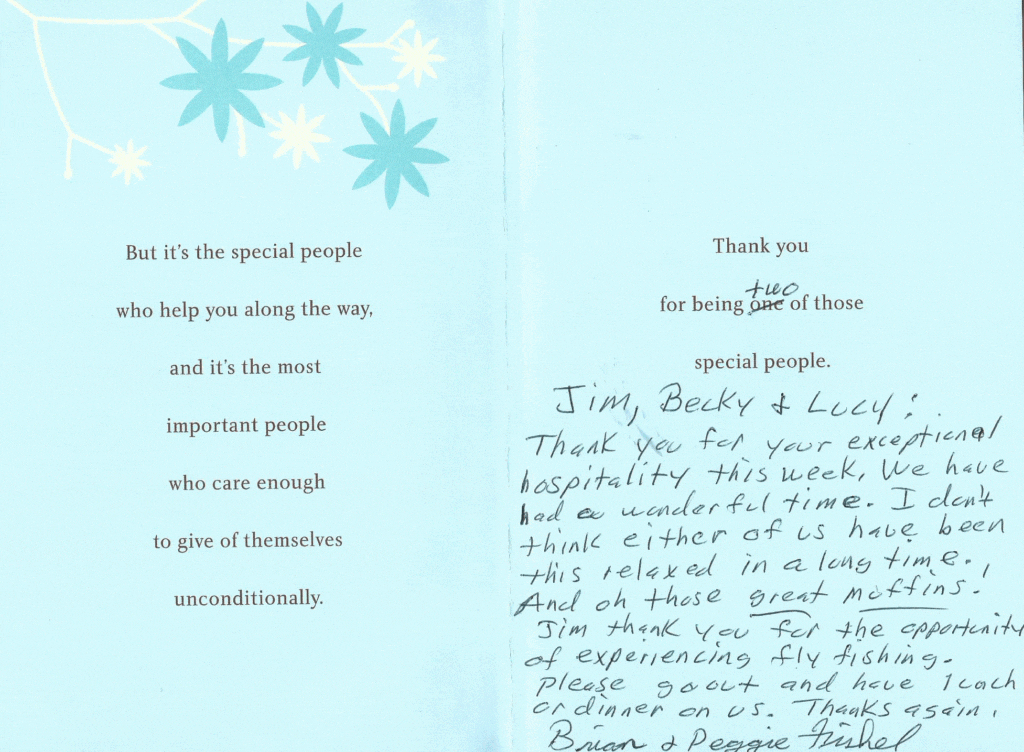 But it's the special people
who help you along the way,
and it's the most
important people
who care enough
to give of themselves
unconditionally.
Thank you
two
for being one of those
special people.
Jim, Becky & Lucy:
Thank you for your exceptional
hospitality this week. We have
had a wonderful time. I don't
think either of us have been
this relaxed in a long time.
And oh those great muffins.
Jim thank you for the opportunity
of experiencing fly fishing.
Please go out and have lunch
or dinner on us. Thanks again,
Brian & Peggie